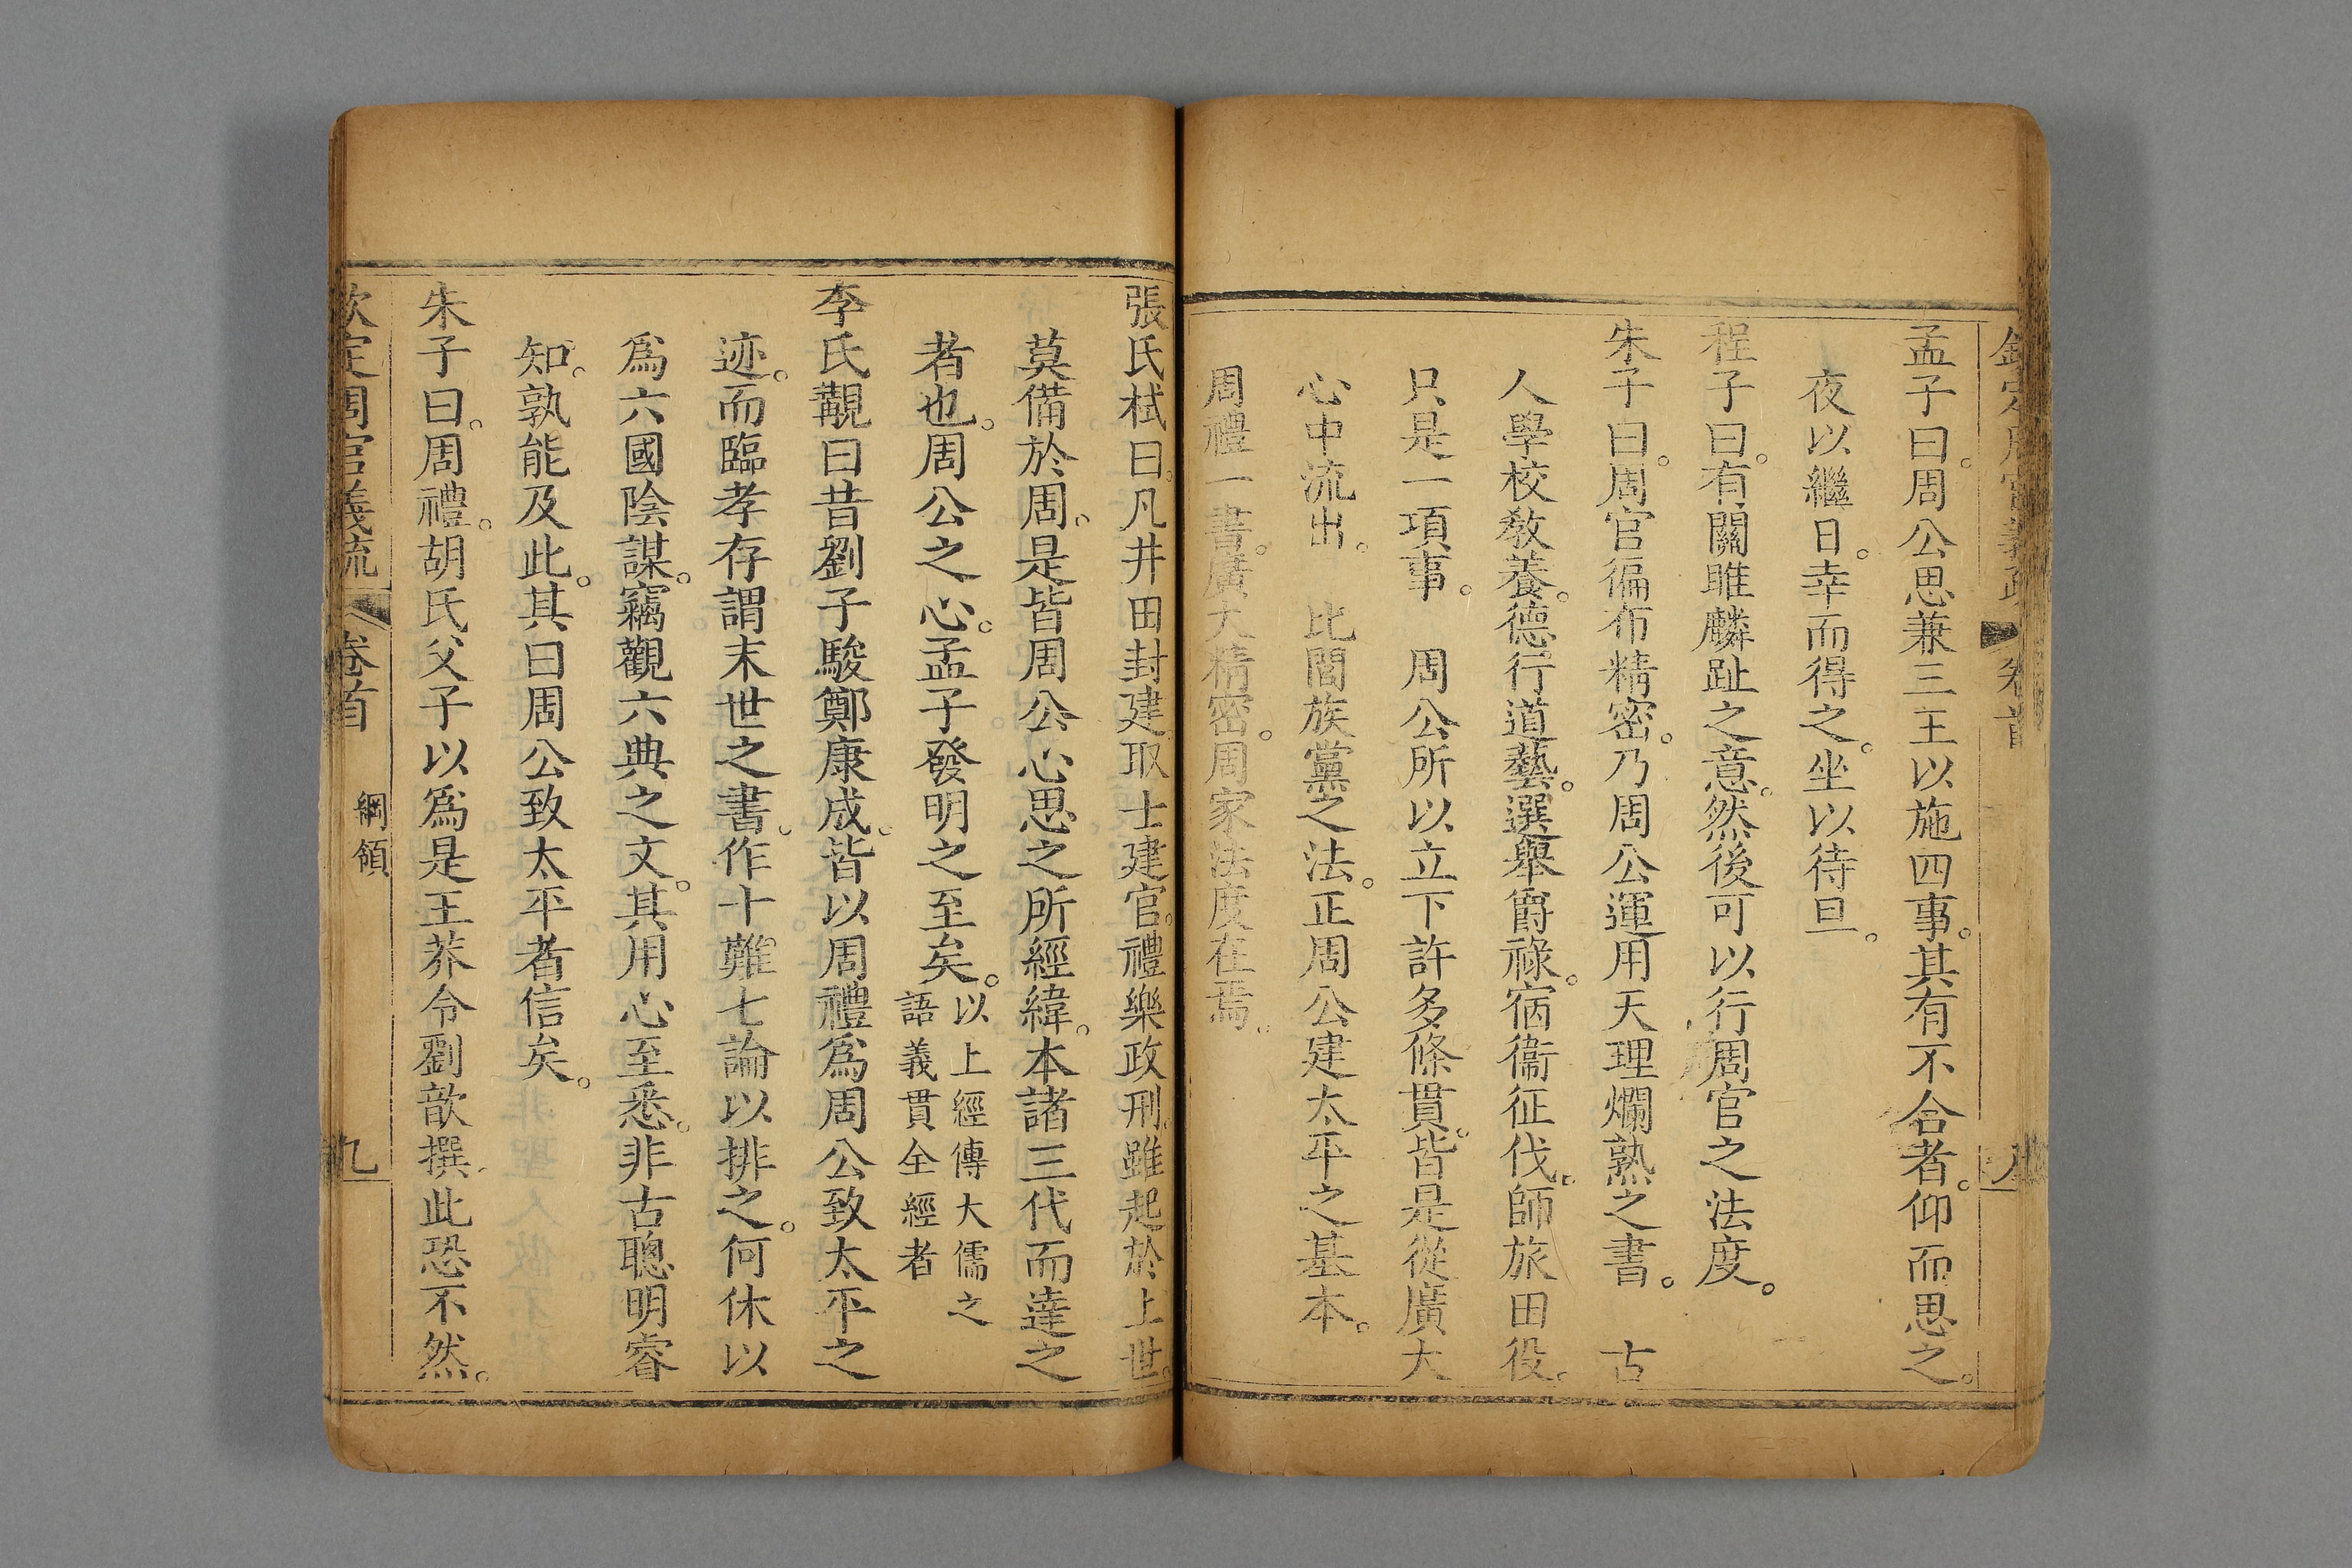 孟子曰。周公思兼三王以施四事。其有不合者。仰而思之。
夜以繼日。幸而得之。坐以待旦。
程子曰。有關雎麟趾之意。然後可以行周官之法度。
朱子曰。周官徧布精密。乃周公運用天理爛熟之書。　古
人學校敎養。德行道藝。選舉爵祿。宿衞征伐。師旅田役。
只是一項事。　周公所以立下許多條貫。皆是從廣大
心中流出。　比閭族黨之法。正周公建太平之基本。
周禮一書。廣大精密。周家法度在焉。
張氏栻曰。凡井田封建取士建官。禮樂政刑。雖起於上世。
莫備於周。是皆周公心思之所經緯。本諸三代而達之
者也。周公之心。孟子發明之至矣。以上經傳大儒之
語義貫全經者
李氏覯曰昔劉子駿鄭康成。皆以周禮爲周公致太平之
迹。而臨孝存謂末世之書。作十難七論以排之。何休以
爲六國陰謀。竊觀六典之文。其用心至悉。非古聰明睿
知。孰能及此。其曰周公致太平者信矣。
朱子曰。周禮。胡氏父子以爲是王莽令劉歆撰。此恐不然。
欽定周官義疏　卷首　綱領　九